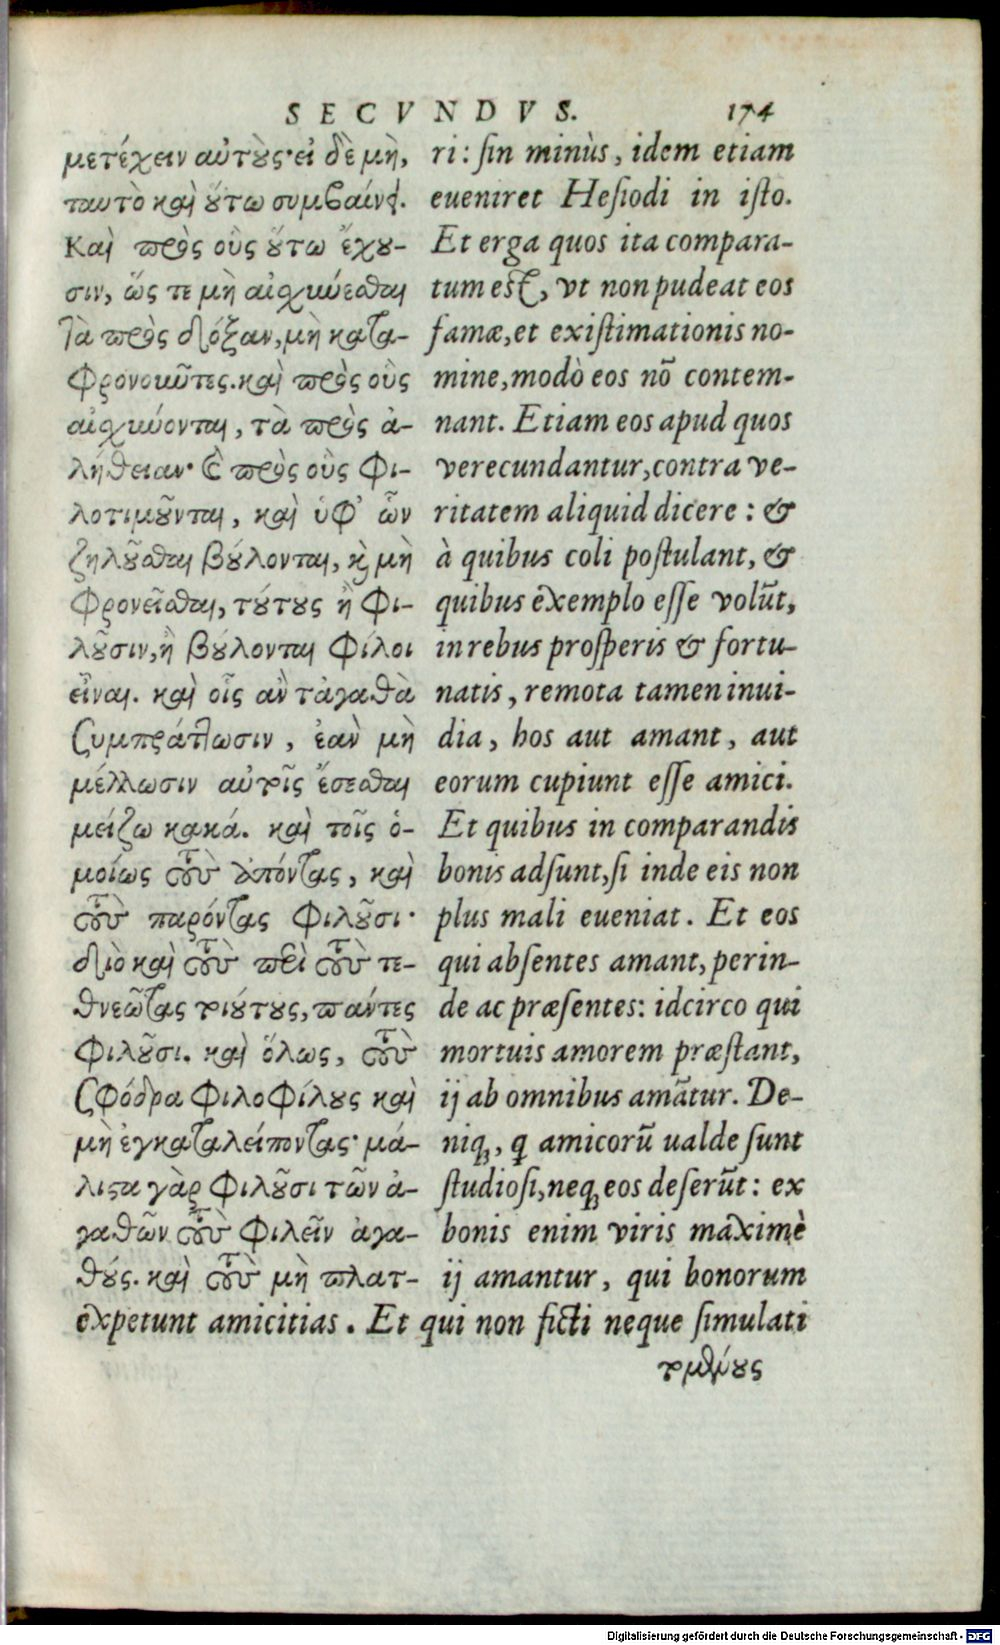 SECVNDVS. 174
μετέχειν αὐτοὺς· εἰ δὲ μὴ,
ταυτὸ καὶ οὕτω συμβαίνει.
Καὶ πρὸς οὓς οὕτω ἔχου-
σιν, ὥς τε μὴ αἰσχύνεσθαι
τὰ πρὸς δόξαν, μὴ κατα-
φρονοῦντες. καὶ πρὸς οὓς
αἰσχύνονται, τὰ πρὸς ἀ-
λήθειαν· καὶ πρὸς οὓς φι-
λοτιμοῦνται, καὶ ὑφ' ὧν
ζηλοῦσθαι βούλονται, καὶ μὴ
φθονεῖσθαι, τούτους ἢ φι-
λοῦσιν, ἢ βούλονται φίλοι
εἶναι. καὶ οἷς ἂν τἀγαθὰ
συμπράττωσιν, ἐὰν μὴ
μέλλωσιν αὐτοῖς ἔσεσθαι
μείζω κακά. καὶ τοῖς ὁ-
μοίως τοὺς ἀπόντας, καὶ
τοὺς παρόντας φιλοῦσι·
διὸ καὶ τοὺς περὶ τοὺς τε-
θνεῶτας τοιούτους, πάντες
φιλοῦσι. καὶ ὅλως, τοὺς
σφόδρα φιλοφίλους καὶ
μὴ ἐγκαταλείποντας· μά-
λιστα γὰρ φιλοῦσι τῶν ἀ-
γαθῶν τοὺς φιλεῖν ἀγα-
θούς. καὶ τοὺς μὴ πλατ-
ri: sin minùs, idem etiam
eueniret Hesiodi in isto.
Et erga quos ita compara-
tum est, vt non pudeat eos
famæ, et existimationis no-
mine, modò eos nō contem-
nant. Etiam eos apud quos
verecundantur, contra ve-
ritatem aliquid dicere: &
à quibus coli postulant, &
quibus exemplo esse volūt,
in rebus prosperis & fortu-
natis, remota tamen inui-
dia, hos aut amant, aut
eorum cupiunt esse amici.
Et quibus in comparandis
bonis adsunt, si inde eis non
plus mali eueniat. Et eos
qui absentes amant, perin-
de ac præsentes: idcirco qui
mortuis amorem præstant,
ij ab omnibus amātur. De-
niq́ꝫ, q amicorū ualde sunt
studiosi, neqꝫ eos deserūt: ex
bonis enim viris maximè
ij amantur, qui bonorum
expetunt amicitias. Et qui non ficti neque simulati
τομένους
Digitalisierung gefördert durch die Deutsche Forschungsgemeinschaft - DFG